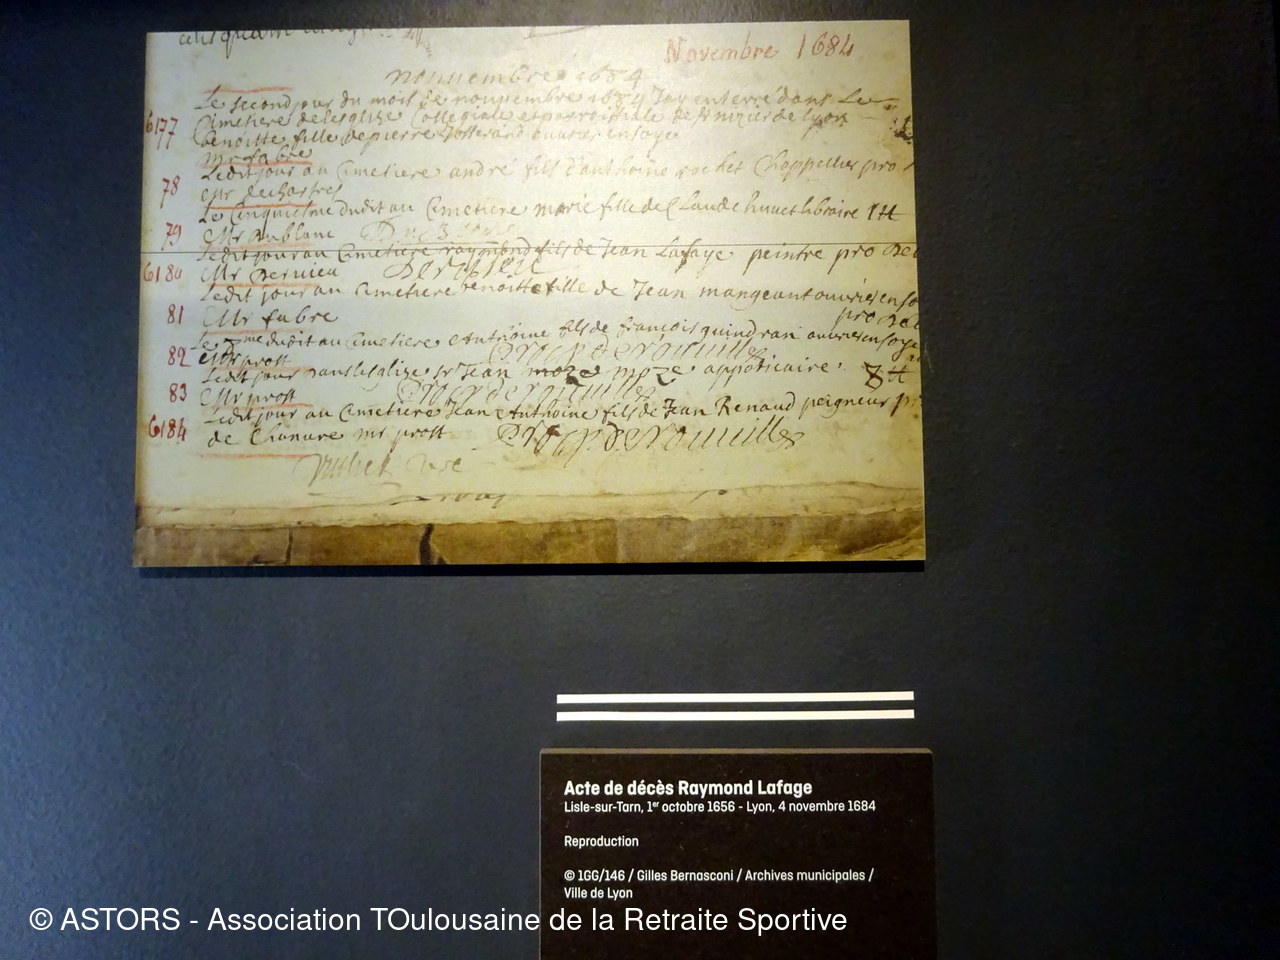 Novembre 1684
nouuembre 1684
Le second jour du mois de nouuembre 1684 Jay enterré dans Le
6177 Cimetiere de leglize Collegiale et parroissiale de St nizier de lyon
benoitte fille de pierre Josserand ouurier en soye
Mr fabre
Ledit jour au Cimetiere andré fils d'anthoine rochet Chappellier pro
78 Mr dechastres
Le Cinquiesme dudit au Cimetiere marie fille de Claude huuet libraire 1 tt
79 Mr Dublanc
Ledit jour au Cimetiere raymond fils de Jean Lafage peintre pro Deo
6180 Mr Dervieu Dervieu
Ledit jour au Cimetiere benoitte fille de Jean mangeant ouurier en so
81 Mr fabre pro Deo
Le dudit au Cimetiere Anthoine fils de françois guindran ouurier en soye
82 Mr prost
Ledit jour dans leglize Sr Jean moze moze appoticaire 8 tt
83 Mr prost
Ledit jour au Cimetiere Jean Anthoine fils de Jean Renaud peigneur
6184 de Chanure mr prost
Acte de décès Raymond Lafage
Lisle-sur-Tarn, 1er octobre 1656 - Lyon, 4 novembre 1684
Reproduction
© 1GG/146 / Gilles Bernasconi / Archives municipales /
Ville de Lyon
© ASTORS - Association TOulousaine de la Retraite Sportive